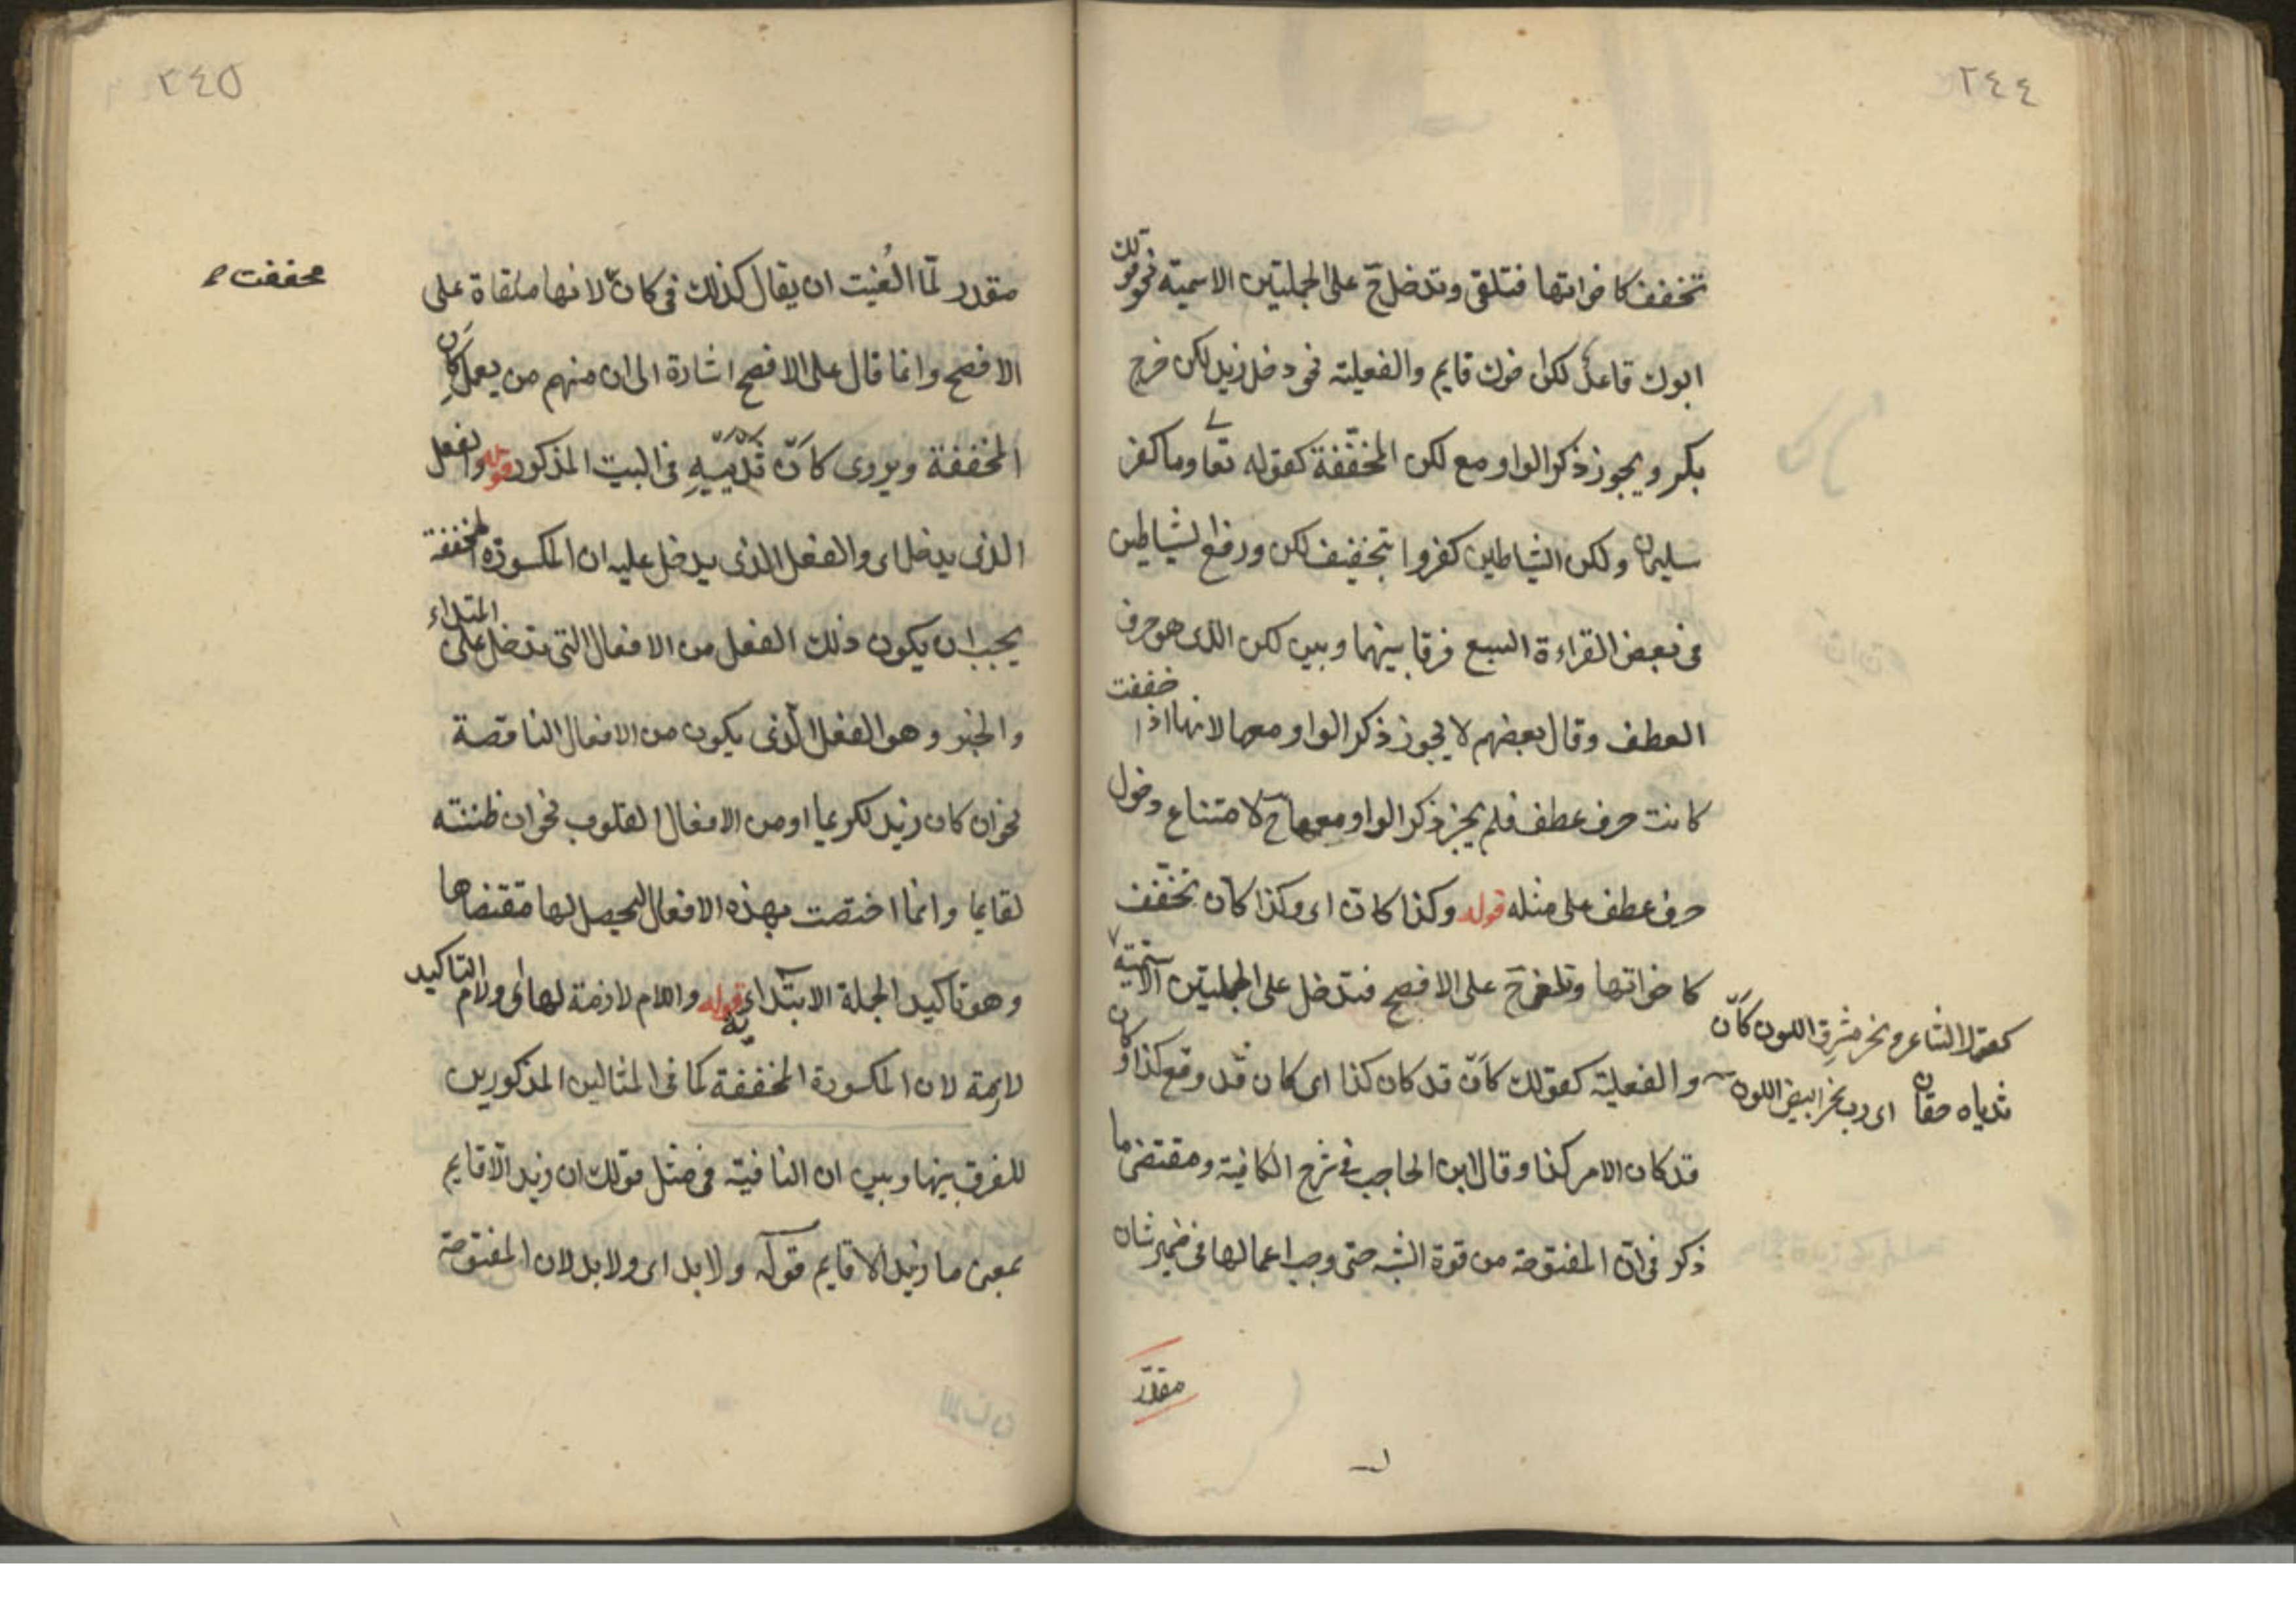 ٢٤٤
تخفف كاخواتها فتلقى وتدخل ح على الجملتين الاسمية نحو قولك
ابوك قاعد لكن اخوك قايم والفعلية نحو دخل زيد لكن خرج
بكر ويجوز ذكر الواو مع لكن المخففة كقوله تعا وما كفر
سليمان ولكن الشياطين كفروا بتخفيف لكن ورفع الشياطين
فى بعض القراءة السبع فرقا بينها وبين لكن الذى هو حرف
العطف وقال بعضهم لا يجوز ذكر الواو معها لانها اذا خففت
كانت حرف عطف فلم يجز ذكر الواو معها ح لامتناع دخول
حرف عطف على مثله قوله وكذا كانّ اى وكذا كانّ تخفف
كاخواتها وتلغى ح على الافصح فتدخل على الجملتين الاسمية
كقول الشاعر ونحر مشرق اللون كأنّ
ثدياه حقان اى رب نحر ابيض اللون
والفعلية كقولك كأنّ قد كان كذا اى كان قد وقع كذا وكان
قد كان الامر كذا وقال ابن الحاجب فى شرح الكافية ومقتضى ما
ذكر فى انّ المفتوحة من قوة الشبه حتى وجب اعمالها فى ضمير شان
مقدّر
٢٤٥
مقدر لمّا الغيت ان يقال كذلك فى كانّ لانها ملقاة على
مخففت
الافصح وانما قال على الافصح اشارة الى ان منهم من يعمل كان
المخففة ويروى كأنّ ثدييه فى البيت المذكور قوله والفعل
الذى يدخل اى والفعل الذى يدخل عليه ان المكسورة المخففة
يجب ان يكون ذلك الفعل من الافعال التى تدخل على المبتداء
والخبر وهو الفعل الذى يكون من الافعال الناقصة
نحو ان كان زيد لكريما او من الافعال القلوب نحو ان ظننته
لقايما وانما اختصت بهذه الافعال ليحصل لها مقتضاها
وهو تاكيد الجملة الابتدائية قوله واللام لازمة لها اى ولام التاكيد
لازمة لان المكسورة المخففة كما فى المثالين المذكورين
للفرق بينها وبين ان النافية فى مثل قولك ان زيد الّا قايم
بمعنى ما زيد الا قايم قوله ولا بد اى ولا بد لان المفتوحة